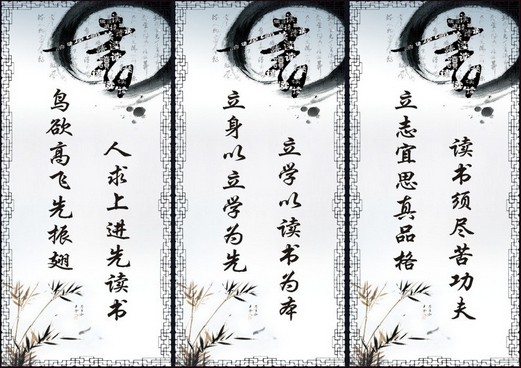 書
鸟欲高飞先振翅
人求上进先读书
書
立身以立学为先
立学以读书为本
書
立志宜思真品格
读书须尽苦功夫